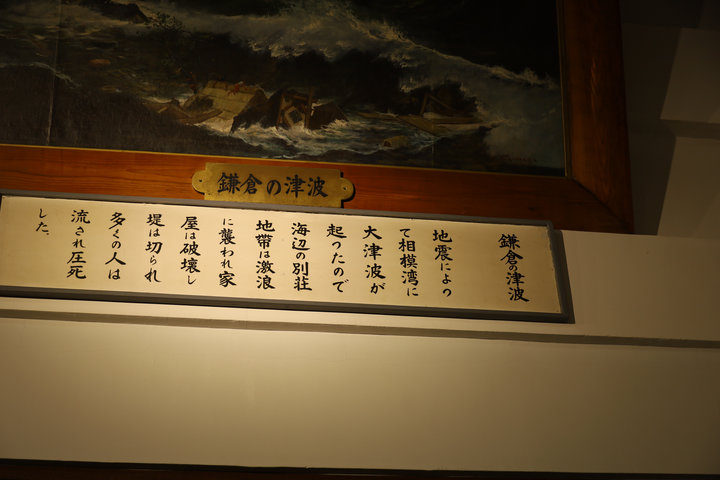 鎌倉の津波
鎌倉の津波
地震によっ
て相模湾に
大津波が
起ったので
海辺の別荘
地帯は激浪
に襲われ家
屋は破壊し
堤は切られ
多くの人は
流され圧死
した。